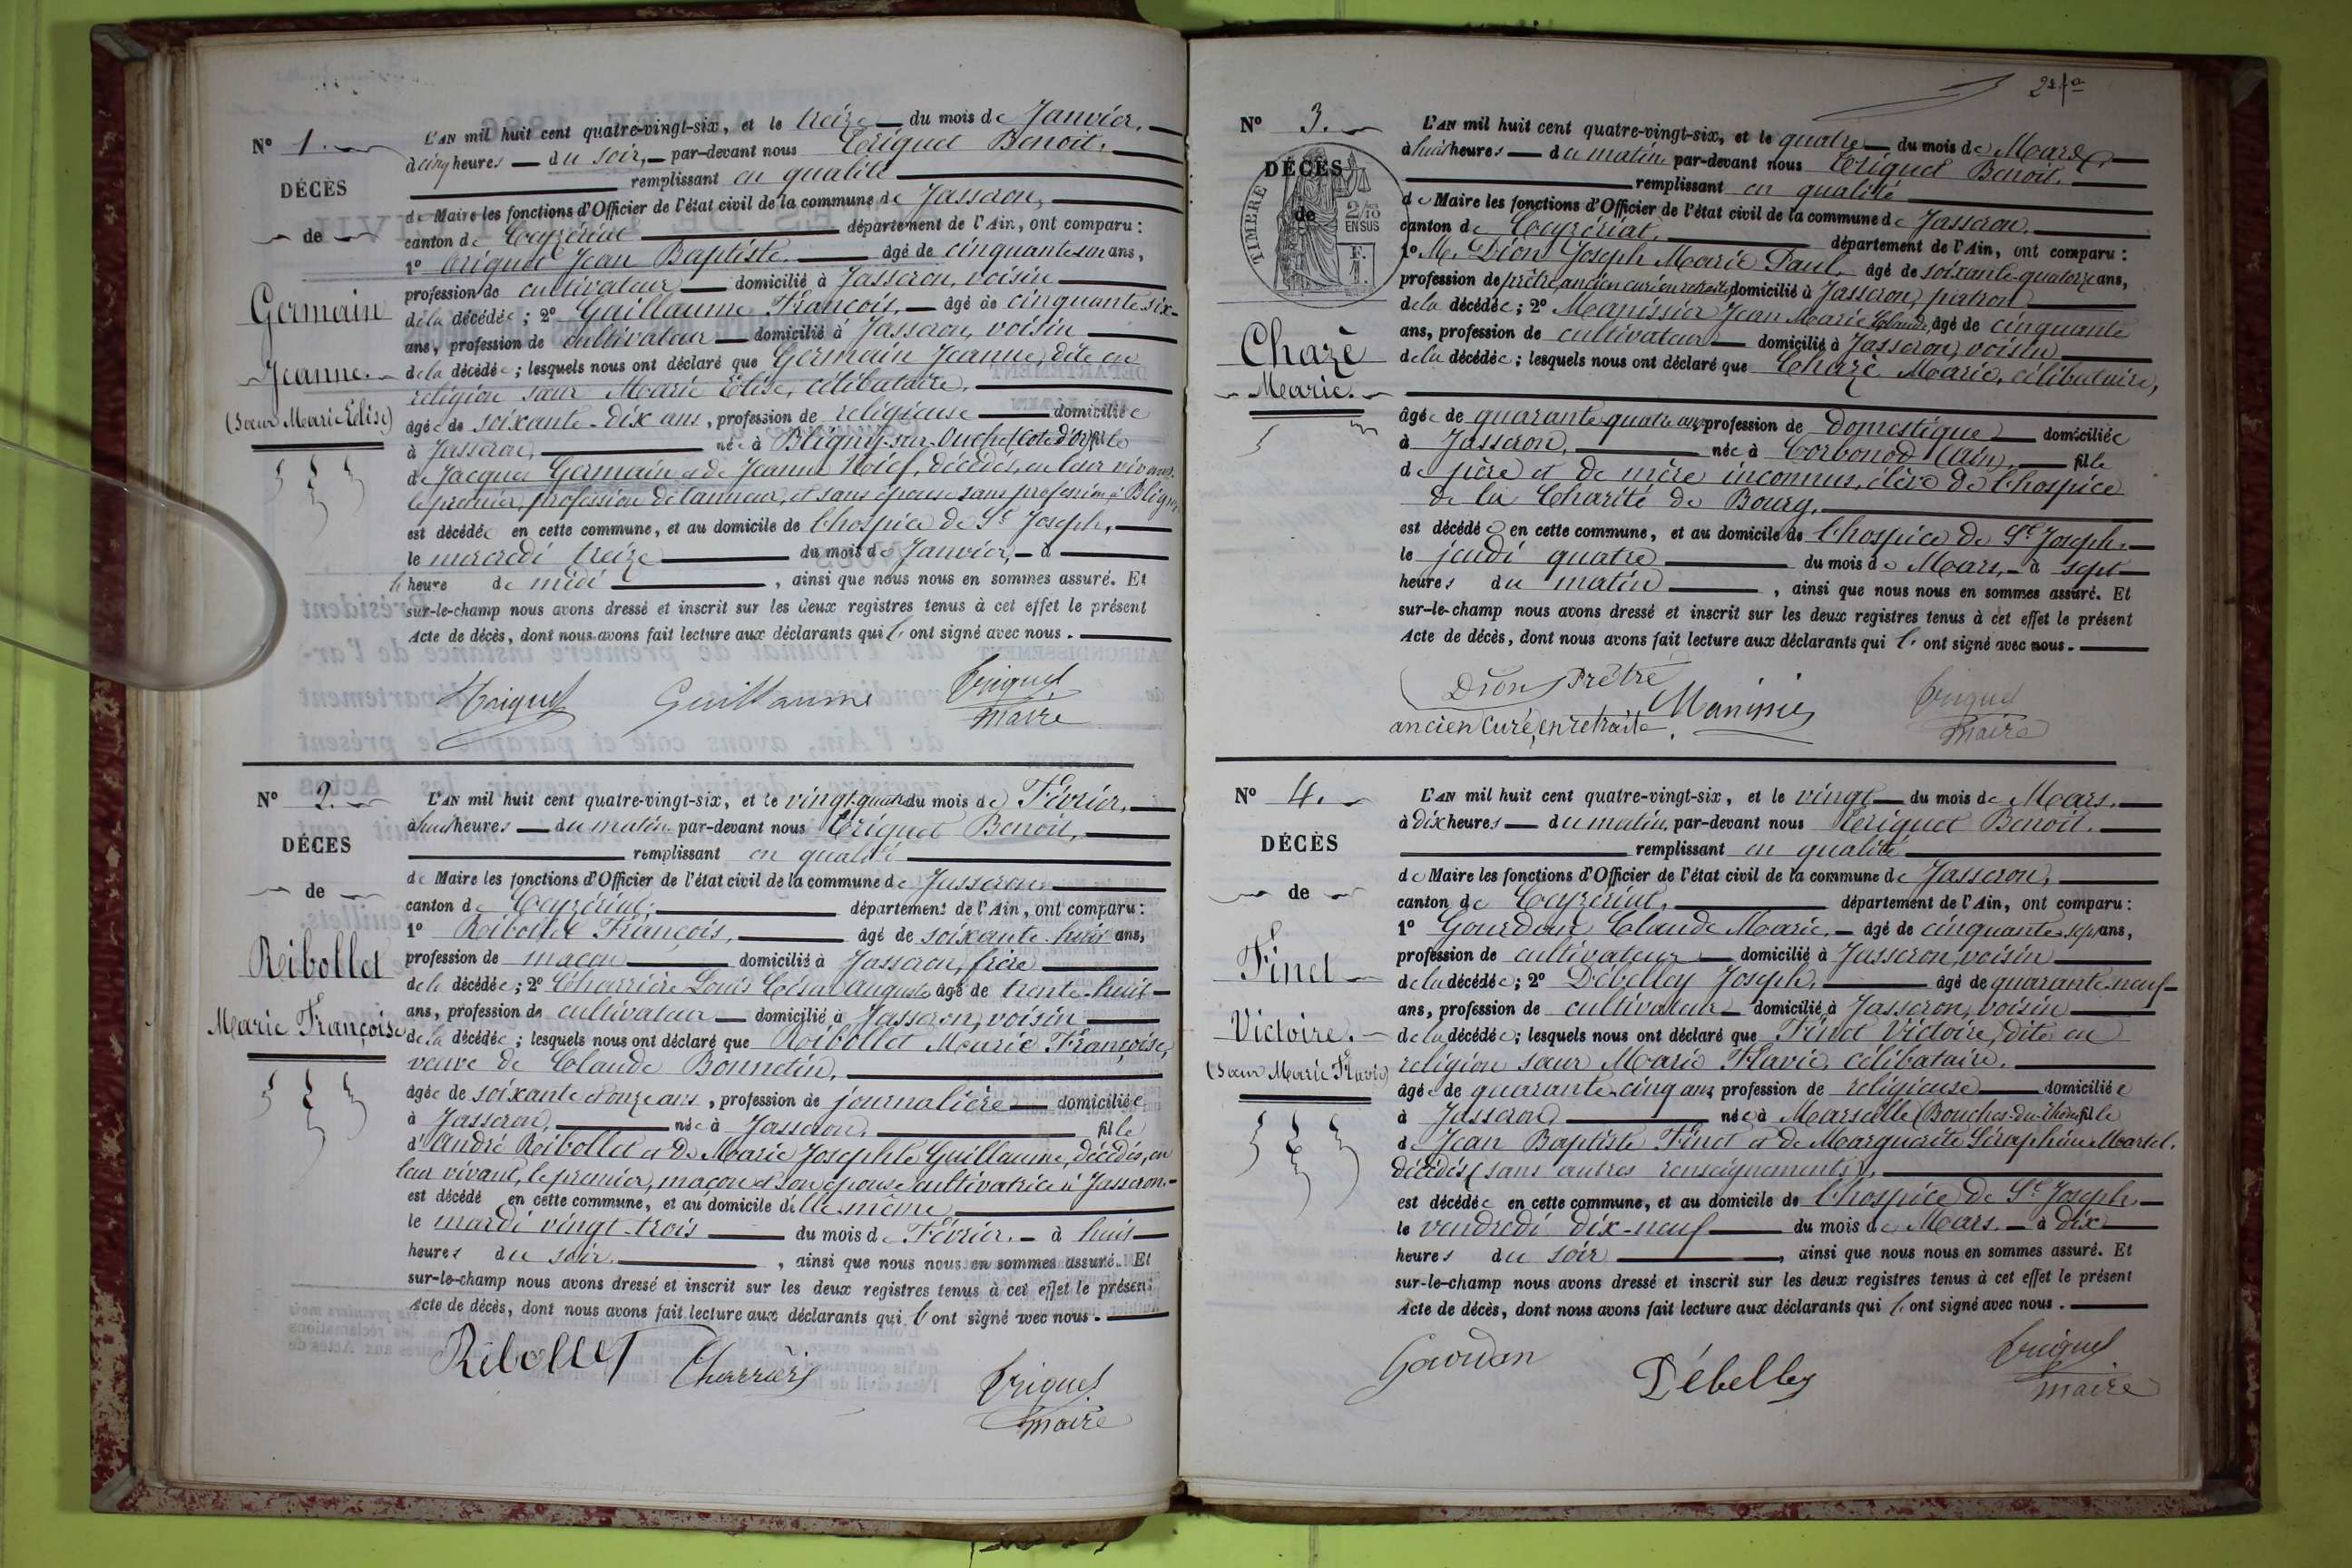 N° 1.
DÉCÈS
de
Germain
Jeanne.
(Sœur Marie Elise)
L'AN mil huit cent quatre-vingt-six, et le treize du mois de Janvier,
à cinq heures du soir, par-devant nous Triquet Benoit.
remplissant en qualité
de Maire les fonctions d'Officier de l'état civil de la commune de Jasseron,
canton de Ceyzériat département de l'Ain, ont comparu :
1° Triquet Jean Baptiste. âgé de cinquante ans,
profession de cultivateur domicilié à Jasseron, voisin
de la décédée ; 2° Guillaume François, âgé de cinquante six-
ans, profession de cultivateur domicilié à Jasseron, voisin
de la décédée ; lesquels nous ont déclaré que Germain Jeanne, dite en
religion sœur Marie Elise, célibataire,
âgée de soixante-dix ans, profession de religieuse domiciliée
à Jasseron, née à Bligny-sur-Ouche (Côte d'Or) fille
de Jacques Germain et de Jeanne décédés, en leur vivant,
le premier, profession de tanneur, et sans épouse sans profession à Bligny,
est décédée en cette commune, et au domicile de l'hospice de St Joseph,
le mercredi treize du mois de Janvier, à
heure de midi , ainsi que nous nous en sommes assuré. Et
sur-le-champ nous avons dressé et inscrit sur les deux registres tenus à cet effet le présent
Acte de décès, dont nous avons fait lecture aux déclarants qui l'ont signé avec nous.
Triquet Guillaume Triquet
maire
N° 2.
DÉCÈS
de
Ribollet
Marie Françoise
L'AN mil huit cent quatre-vingt-six, et le vingt-quatre du mois de Février,
à huit heures du matin par-devant nous Triquet Benoit,
remplissant en qualité
de Maire les fonctions d'Officier de l'état civil de la commune de Jasseron
canton de Ceyzériat, département de l'Ain, ont comparu :
1° Ribollet François, âgé de soixante-huit ans,
profession de maçon domicilié à Jasseron, frère
de la décédée ; 2° Charrière Louis César Auguste âgé de trente-huit
ans, profession de cultivateur domicilié à Jasseron, voisin
de la décédée ; lesquels nous ont déclaré que Ribollet Marie Françoise,
veuve de Claude Bonnetin,
âgée de soixante ans, profession de journalière domiciliée
à Jasseron, née à Jasseron, fille
d'André Ribollet et de Marie Josephte Guillaume, décédés, en
leur vivant, le premier, maçon et son épouse cultivatrice à Jasseron.
est décédé en cette commune, et au domicile d'elle même
le mardi vingt-trois du mois de Février. à huit
heures du soir. , ainsi que nous nous en sommes assuré. Et
sur-le-champ nous avons dressé et inscrit sur les deux registres tenus à cet effet le présent
Acte de décès, dont nous avons fait lecture aux déclarants qui l'ont signé avec nous.
Ribollet Charrière Triquet
maire
N° 3.
DÉCÈS
de
TIMBRE
2/10
EN SUS
Chazè
Marie.
L'AN mil huit cent quatre-vingt-six, et le quatre du mois de Mars
à huit heures du matin par-devant nous Triquet Benoit.
remplissant en qualité
de Maire les fonctions d'Officier de l'état civil de la commune de Jasseron,
canton de Ceyzériat, département de l'Ain, ont comparu :
1° Mr Dion Joseph Marie Paul, âgé de soixante-quatorze ans,
profession de prêtre ancien curé en retraite, domicilié à Jasseron, patron
de la décédée ; 2° Manissier Jean Marie Claude, âgé de cinquante
ans, profession de cultivateur domicilié à Jasseron, voisin
de la décédée ; lesquels nous ont déclaré que Chazè Marie, célibataire,
âgée de quarante-quatre ans, profession de Domestique domiciliée
à Jasseron, née à Corbonod (Ain), fille
de père et de mère inconnus, élève de l'hospice
de la Charité de Bourg,
est décédée en cette commune, et au domicile de l'hospice de St Joseph.
le jeudi quatre du mois de Mars, à sept
heures du matin , ainsi que nous nous en sommes assuré. Et
sur-le-champ nous avons dressé et inscrit sur les deux registres tenus à cet effet le présent
Acte de décès, dont nous avons fait lecture aux déclarants qui l'ont signé avec nous.
Dion Prêtre
ancien Curé, en retraite. Manissier Triquet
maire
N° 4.
DÉCÈS
de
Finet
Victoire.
(Sœur Marie Flavie)
L'AN mil huit cent quatre-vingt-six, et le vingt du mois de Mars.
à dix heures du matin, par-devant nous Triquet Benoit.
remplissant en qualité
de Maire les fonctions d'Officier de l'état civil de la commune de Jasseron,
canton de Ceyzériat, département de l'Ain, ont comparu :
1° Gourdan Claude Marie. âgé de cinquante sept ans,
profession de cultivateur domicilié à Jasseron, voisin
de la décédée ; 2° Débelley Joseph, âgé de quarante-neuf
ans, profession de cultivateur domicilié à Jasseron, voisin
de la décédée ; lesquels nous ont déclaré que Finet Victoire, dite en
religion sœur Marie Flavie, célibataire.
âgée de quarante-cinq ans, profession de religieuse domiciliée
à Jasseron, née à Marseille (Bouches-du-Rhône) fille
de Jean Baptiste Finet et de Marguerite Séraphine Martel.
décédés (sans autres renseignements),
est décédée en cette commune, et au domicile de l'hospice de St Joseph
le vendredi dix-neuf du mois de Mars. à dix
heures du soir , ainsi que nous nous en sommes assuré. Et
sur-le-champ nous avons dressé et inscrit sur les deux registres tenus à cet effet le présent
Acte de décès, dont nous avons fait lecture aux déclarants qui l'ont signé avec nous.
Gourdan Débelley Triquet
maire